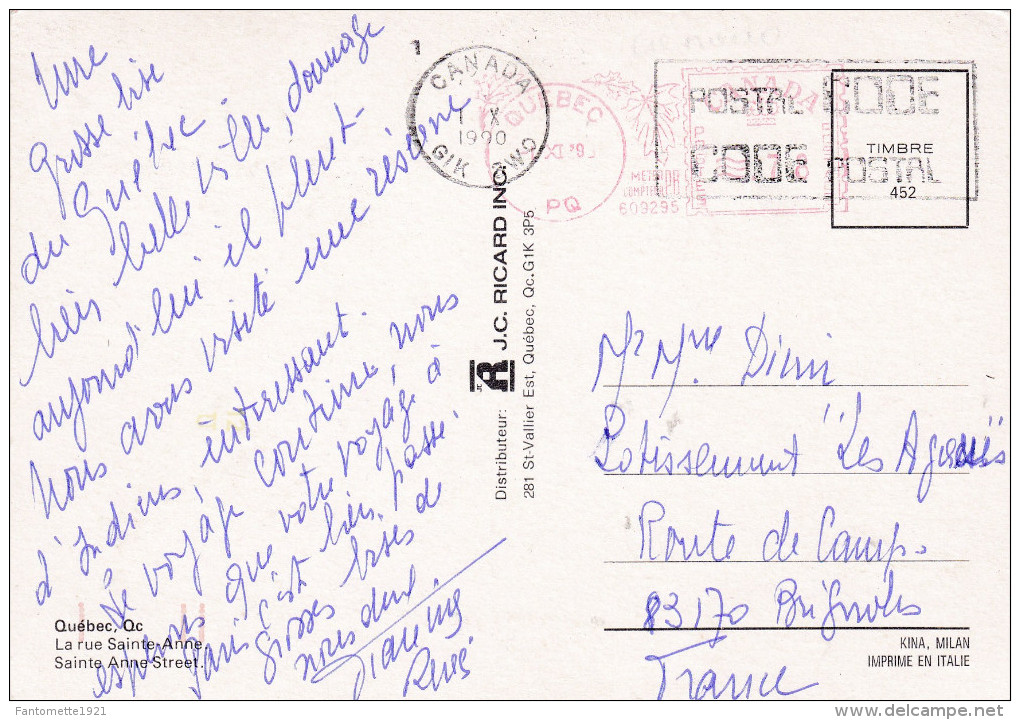 Une
grosse bise
du Québec
bien belle ville, dommage
aujourd'hui il pleut
nous avons visité une réserve
d'Indiens, intéressant.
Le voyage continue, nous
espérons que votre voyage à
Paris c'est bien passé!
grosses bises de
nous deux
Janine
René
Québec, Qc
La rue Sainte-Anne.
Sainte Anne Street.
Distributeur: J.C. RICARD INC.
281 St-Vallier Est, Québec, Qc.G1K 3P5
1
CANADA
X
1990
G1K
QUÉBEC
XI
PQ
CANADA
609295
POSTAL CODE
CODE POSTAL
TIMBRE
452
Mr Mme Dini
Lotissement "Les
Route de Camps
83170 Brignoles
France
KINA, MILAN
IMPRIME EN ITALIE
© Fantomette1921
delcampe.net